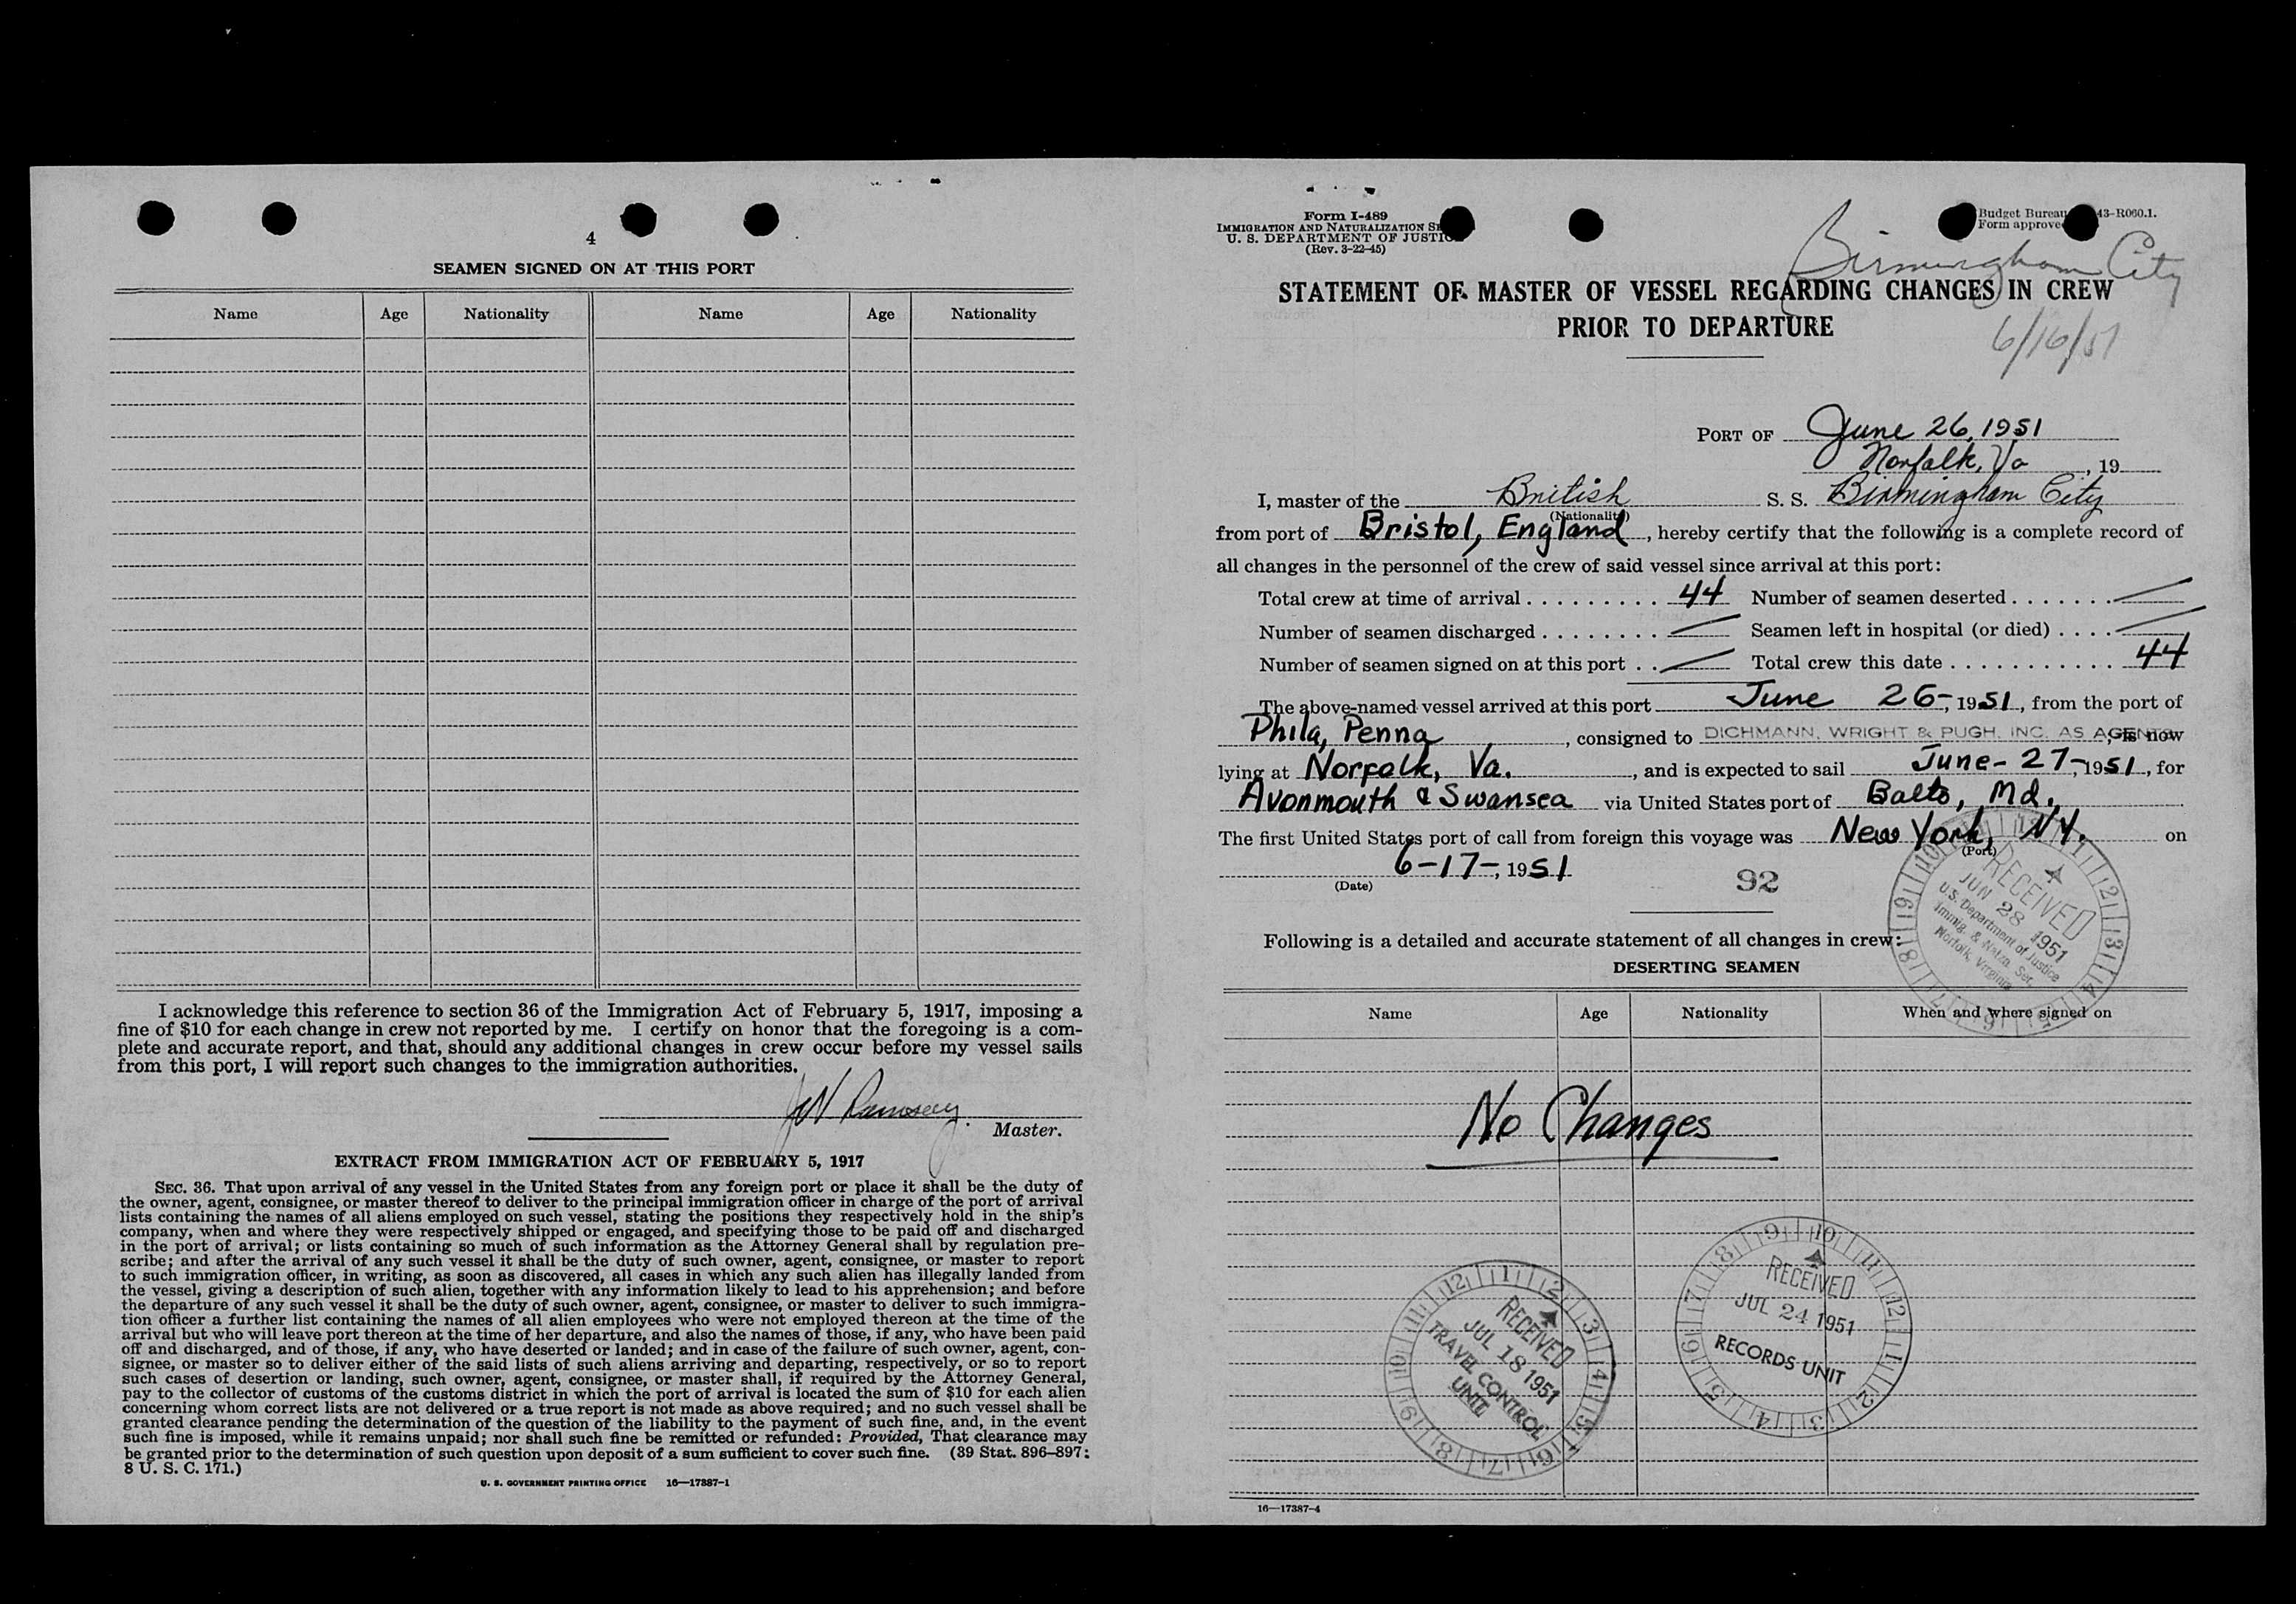 4
SEAMEN SIGNED ON AT THIS PORT
Name Age Nationality Name Age Nationality
I acknowledge this reference to section 36 of the Immigration Act of February 5, 1917, imposing a
fine of $10 for each change in crew not reported by me. I certify on honor that the foregoing is a com-
plete and accurate report, and that, should any additional changes in crew occur before my vessel sails
from this port, I will report such changes to the immigration authorities.
Ramsey
Master.
EXTRACT FROM IMMIGRATION ACT OF FEBRUARY 5, 1917
SEC. 36. That upon arrival of any vessel in the United States from any foreign port or place it shall be the duty of
the owner, agent, consignee, or master thereof to deliver to the principal immigration officer in charge of the port of arrival
lists containing the names of all aliens employed on such vessel, stating the positions they respectively hold in the ship's
company, when and where they were respectively shipped or engaged, and specifying those to be paid off and discharged
in the port of arrival; or lists containing so much of such information as the Attorney General shall by regulation pre-
scribe; and after the arrival of any such vessel it shall be the duty of such owner, agent, consignee, or master to report
to such immigration officer, in writing, as soon as discovered, all cases in which any such alien has illegally landed from
the vessel, giving a description of such alien, together with any information likely to lead to his apprehension; and before
the departure of any such vessel it shall be the duty of such owner, agent, consignee, or master to deliver to such immigra-
tion officer a further list containing the names of all alien employees who were not employed thereon at the time of the
arrival but who will leave port thereon at the time of her departure, and also the names of those, if any, who have been paid
off and discharged, and of those, if any, who have deserted or landed; and in case of the failure of such owner, agent, con-
signee, or master so to deliver either of the said lists of such aliens arriving and departing, respectively, or so to report
such cases of desertion or landing, such owner, agent, consignee, or master shall, if required by the Attorney General,
pay to the collector of customs of the customs district in which the port of arrival is located the sum of $10 for each alien
concerning whom correct lists are not delivered or a true report is not made as above required; and no such vessel shall be
granted clearance pending the determination of the question of the liability to the payment of such fine, and, in the event
such fine is imposed, while it remains unpaid; nor shall such fine be remitted or refunded: Provided, That clearance may
be granted prior to the determination of such question upon deposit of a sum sufficient to cover such fine. (39 Stat. 896–897;
8 U. S. C. 171.)
U. S. GOVERNMENT PRINTING OFFICE 16—17387-1
Form I-489
IMMIGRATION AND NATURALIZATION
U. S. DEPARTMENT OF JUSTICE
(Rev. 3-22-45)
Budget Bureau 43-R060.1.
Form approved
Birmingham City
STATEMENT OF MASTER OF VESSEL REGARDING CHANGES IN CREW
PRIOR TO DEPARTURE
6/16/51
PORT OF June 26, 1951
Norfolk, Va , 19
I, master of the British S. S. Birmingham City
(Nationality)
from port of Bristol, England, hereby certify that the following is a complete record of
all changes in the personnel of the crew of said vessel since arrival at this port:
Total crew at time of arrival . . . . . . . . . 44 Number of seamen deserted . . . . . . . —
Number of seamen discharged . . . . . . . . — Seamen left in hospital (or died) . . . . —
Number of seamen signed on at this port . . — Total crew this date . . . . . . . . . . . . 44
The above-named vessel arrived at this port June 26-, 1951, from the port of
Phila, Penna, consigned to DICHMANN, WRIGHT & PUGH, INC. AS AGENTS, is now
lying at Norfolk, Va., and is expected to sail June- 27-, 1951, for
Avonmouth & Swansea via United States port of Balto, Md.
The first United States port of call from foreign this voyage was New York, N.Y. on
(Port)
6-17-, 1951
(Date)
92
RECEIVED
JUN 28 1951
U.S. Department of Justice
Immig. & Natzn. Ser.
Norfolk, Virginia
Following is a detailed and accurate statement of all changes in crew:
DESERTING SEAMEN
Name Age Nationality When and where signed on
No Changes
RECEIVED
JUL 18 1951
TRAVEL CONTROL
UNIT
RECEIVED
JUL 24 1951
RECORDS UNIT
16—17387-4